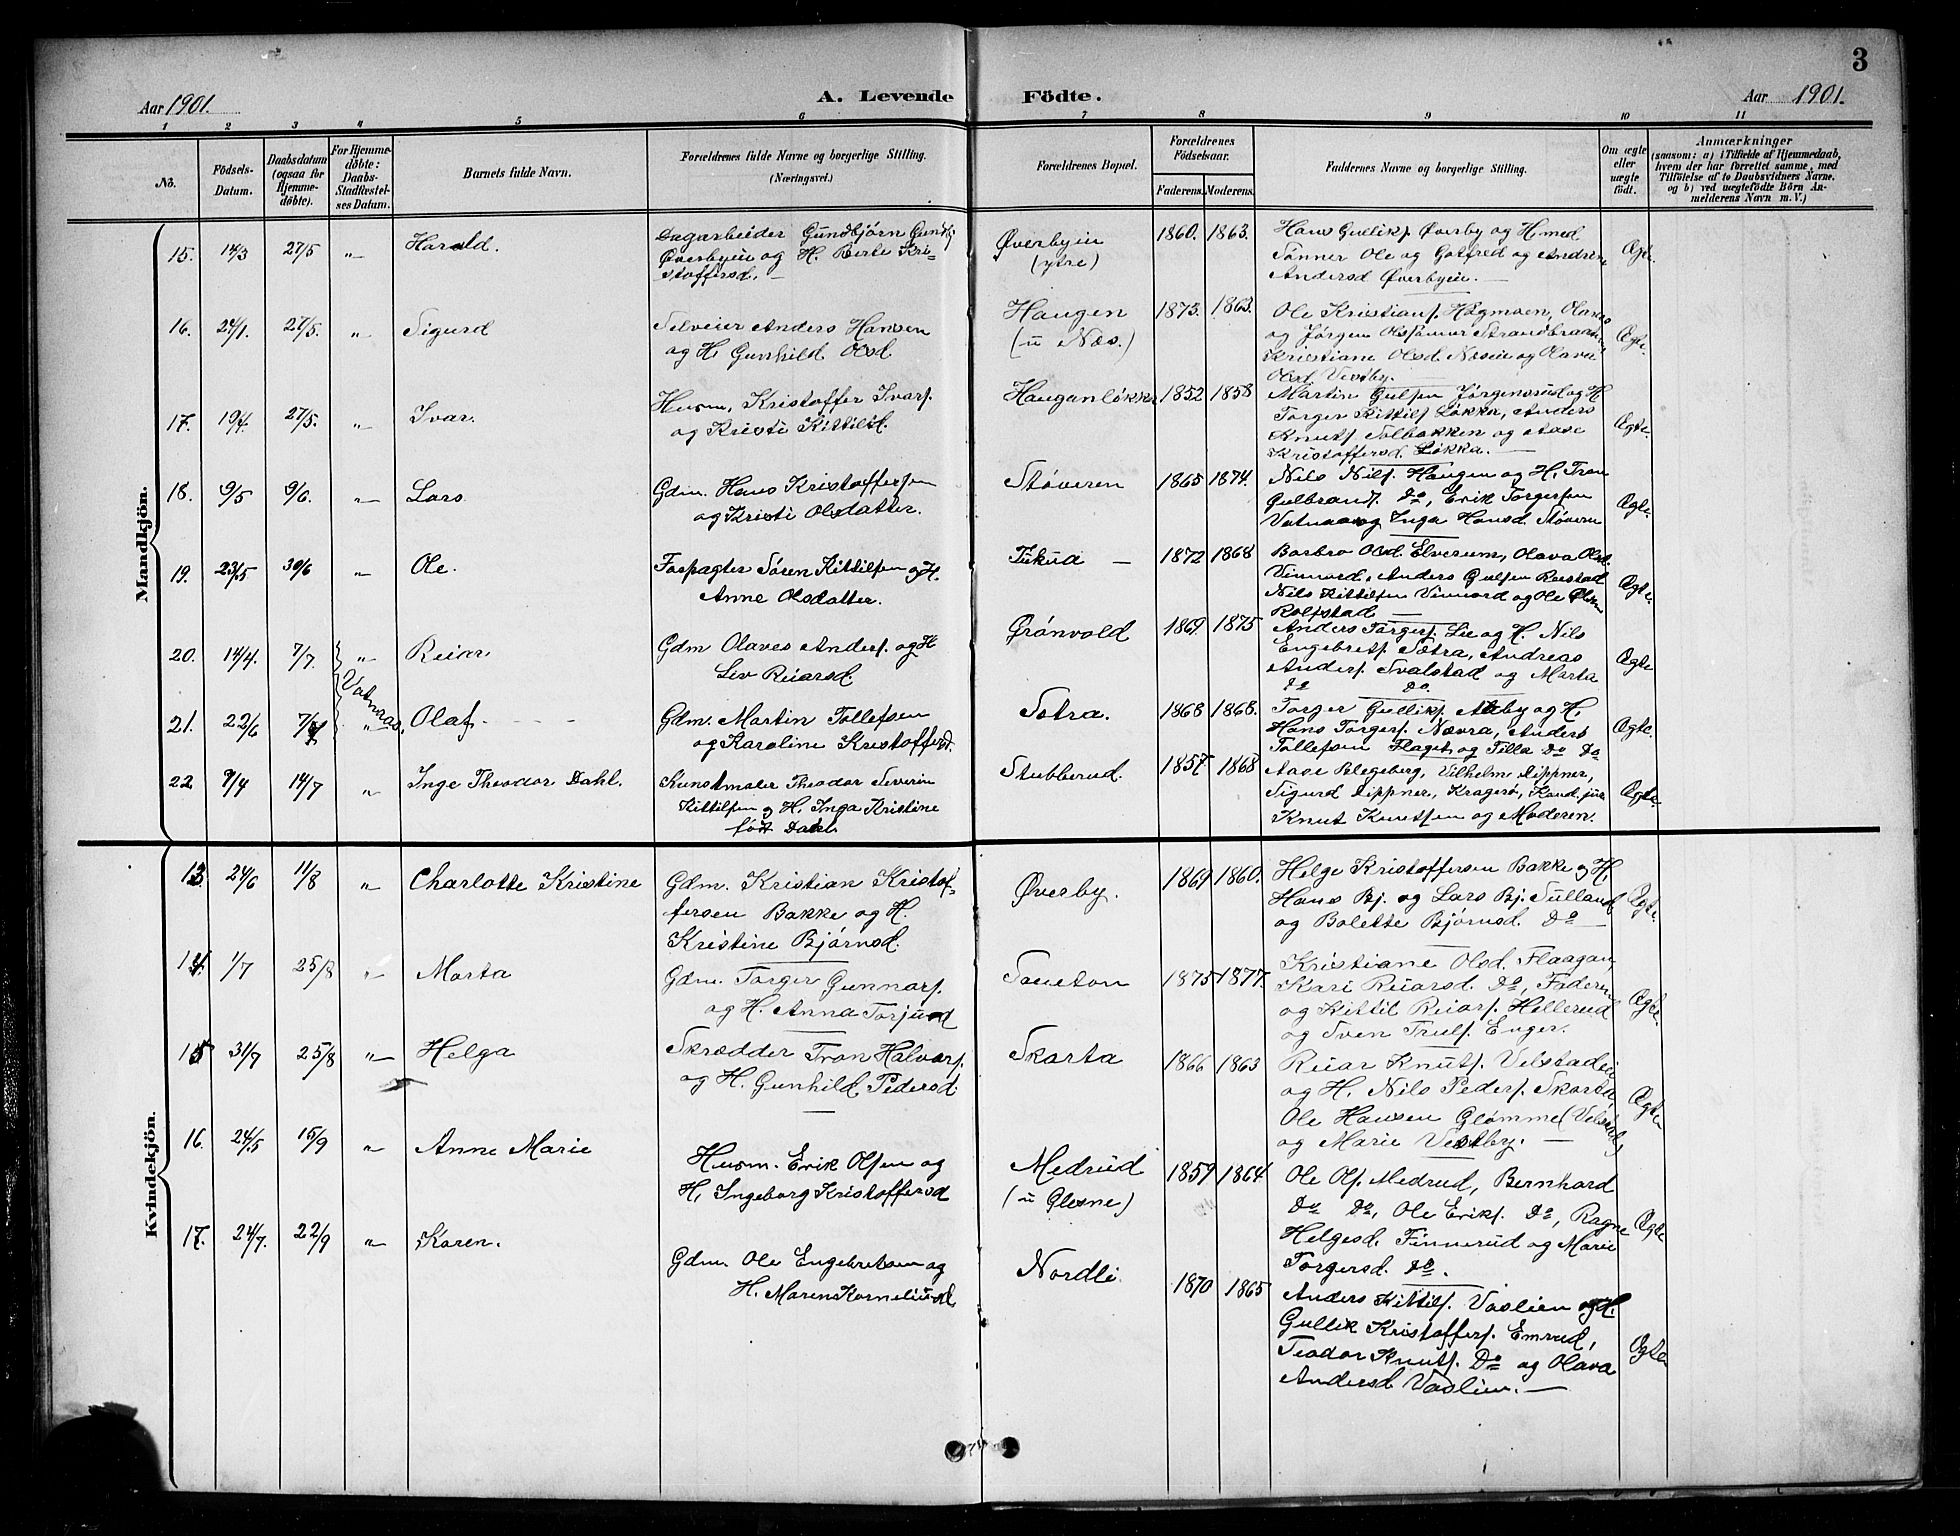 3
Aar 1901. A. Levende Födte. Aar 1901.
1 2 3 4 5 6 7 8 9 10 11
No.
Födsels-
Datum.
Daabsdatum
(ogsaa for
Hjemme-
döbte).
For Hjemme-
döbte:
Daabs-
Stadfæstel-
ses Datum.
Barnets fulde Navn.
Forældrenes fulde Navne og borgerlige Stilling.
(Næringsvei.)
Forældrenes Bopæl.
Forældrenes
Födselsaar.
Faderens. Moderens.
Faddernes Navne og borgerlige Stilling.
Om ægte
eller
uægte
födt.
Anmærkninger
(saasom: a) i Tilfælde af Hjemmedaab,
hvem der har forrettet samme, med
Tilföielse af to Daabsvidners Navne,
og b) ved uægtefödte Börn An-
melderens Navn m. V.)
Mandkjön.
15. 14/3 27/5 " Harald.
Dagarbeider Gundbjørn Gundbj
Øverbyeie og H. Berte Kri-
stoffersd. —
Øverbyeie
(ytre)
1860. 1863.
Hans Gulliks. Øverby og H. med
Sønner Ole og Gotfred og Andrine
Andersd Øverbyeie. —
Ægte.
16. 24/1. 27/5. " Sigurd
Selveier Anders Hansen
og H. Gunhild Olsd
Haugen
(u Næs.)
1873. 1863.
Ole Kristians. Hagmoen, Olaus
og Jørgen Olssønner Strandbraaten
Kristiane Olsd. Næseie og Olava
Olsd Vestby.
Ægte.
17. 19/4. 27/5. " Ivar.
Husm. Kristoffer Ivars.
og Kristi Kittilsd.
Hauganløkka
1852 1858
Martin Gulsen Jørgensrud og H
Torger Kittils Løkka, Anders
Knuts. Solbakken og Aase
Kristoffersd. Løkka. —
Ægte.
18. 9/5 9/6. " Lars
Gdm. Hans Kristoffersen
og Kristi Olsdatter.
Støveren
1865 1874.
Nils Nils. Haugen og H. Tron
Gulbrands. Do, Erik Torgersen
Vatnaas og Inga Hansd. Støveren
Ægte.
19. 23/5 30/6 " Ole.
Forpagter Søren Kittilsen og H.
Anne Olsdatter.
Tukua —
1872 1868
Barbro Olsd. Elverum, Olava Olsd.
Vinnord, Anders Gulsen Brestad
Nils Kittilsen Vinnord og Ole Olsen
Rolfstad —
Ægte.
20. 14/4. 7/7. " Reiar
Gdm Olaves Anders. og H
Liv Reiarsd.
Grønvold
1869. 1875
Anders Torgers. Lie og H. Nils
Engebrets Sætra, Andreas
Anders. Svalstad og Marta
Do Do.
Ægte
Vatnaas.
21. 22/6 7/7 " Olaf.
Gdm. Martin Tollefsen
og Karoline Kristoffersd.
Sotra.
1868 1868.
Torger Gulliks. Aaby og H.
Hans Torgers. Nævra, Anders
Tollefsen Flaget, og Tilla Do Do
Ægte.
22 9/4 14/7 " Inge Theodor Dahl.
Kunstmaler Theodor Severin
Kittilsen og H. Inga Kristine
født Dahl.
Stubberud.
1857. 1868
Aase Blegeberg, Vilhelm Dippner,
Sigurd Dippner, Kragerø, Kand. jur
Knut Knutsen og Moderen.
Ægte.
Kvindekjön.
13. 24/6 11/8 " Charlotte Kristine
Gdm. Kristian Kristof-
fersen Bakke og H.
Kristine Bjørnsd.
Øverby.
1869 1860.
Helge Kristoffersen Bakke og H,
Hans Bj. og Lars Bj. Sulland
og Bolette Bjørnsd. Do —
Ægte.
14. 1/7 25/8 " Marta
Gdm. Torger Gunnars.
og H. Anna Torjusd
Soneton
1875 1877.
Kristiane Olsd. Flaagan,
Kari Reiarsd. Do, Faderen
og Kittil Reiars. Hellerud
og Sven Truls. Enger.
Ægte.
15 31/7 25/8 " Helga
Skrædder Tron Halvors.
og H. Gunhild Pedersd.
Skarta
1866 1863
Reiar Knuts. Velstadeie
og H. Nils Peders. Skarta,
Ole Hansen Glømme (Velstad)
og Marie Vestby. —
Ægte
16. 24/5 15/9 " Anne Marie
Husm. Erik Olsen og
H. Ingeborg Kristoffersd
Medrud
(u Glesne)
1859 1864
Ole Ols. Medrud, Bernhard
Do Do, Ole Eriks. Do, Ragne
Helgesd. Finnerud og Marie
Torgersd. Do.
Ægte
17. 24/7. 22/9 " Karen.
Gdm. Ole Engebretsen og
H. Maren Korneliusd
Nordli
1870 1865
Anders Kittils. Vaslien og H.
Gullik Kristoffers. Emrud,
Teodor Knuts. Do og Olava
Andersd Vaslien. —
Ægte